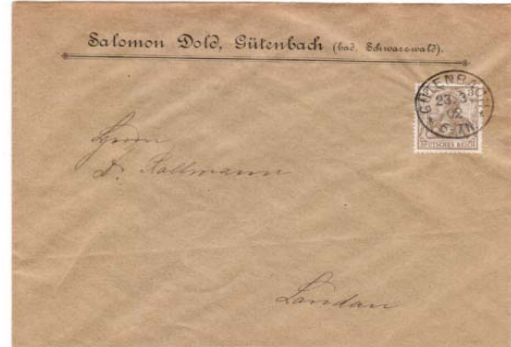 Salomon Dold, Gütenbach (bad. Schwarzwald).
GÜTENBACH
23.3
02
6-7N
DEUTSCHES REICH
Herrn
F. Kollmann
Landau